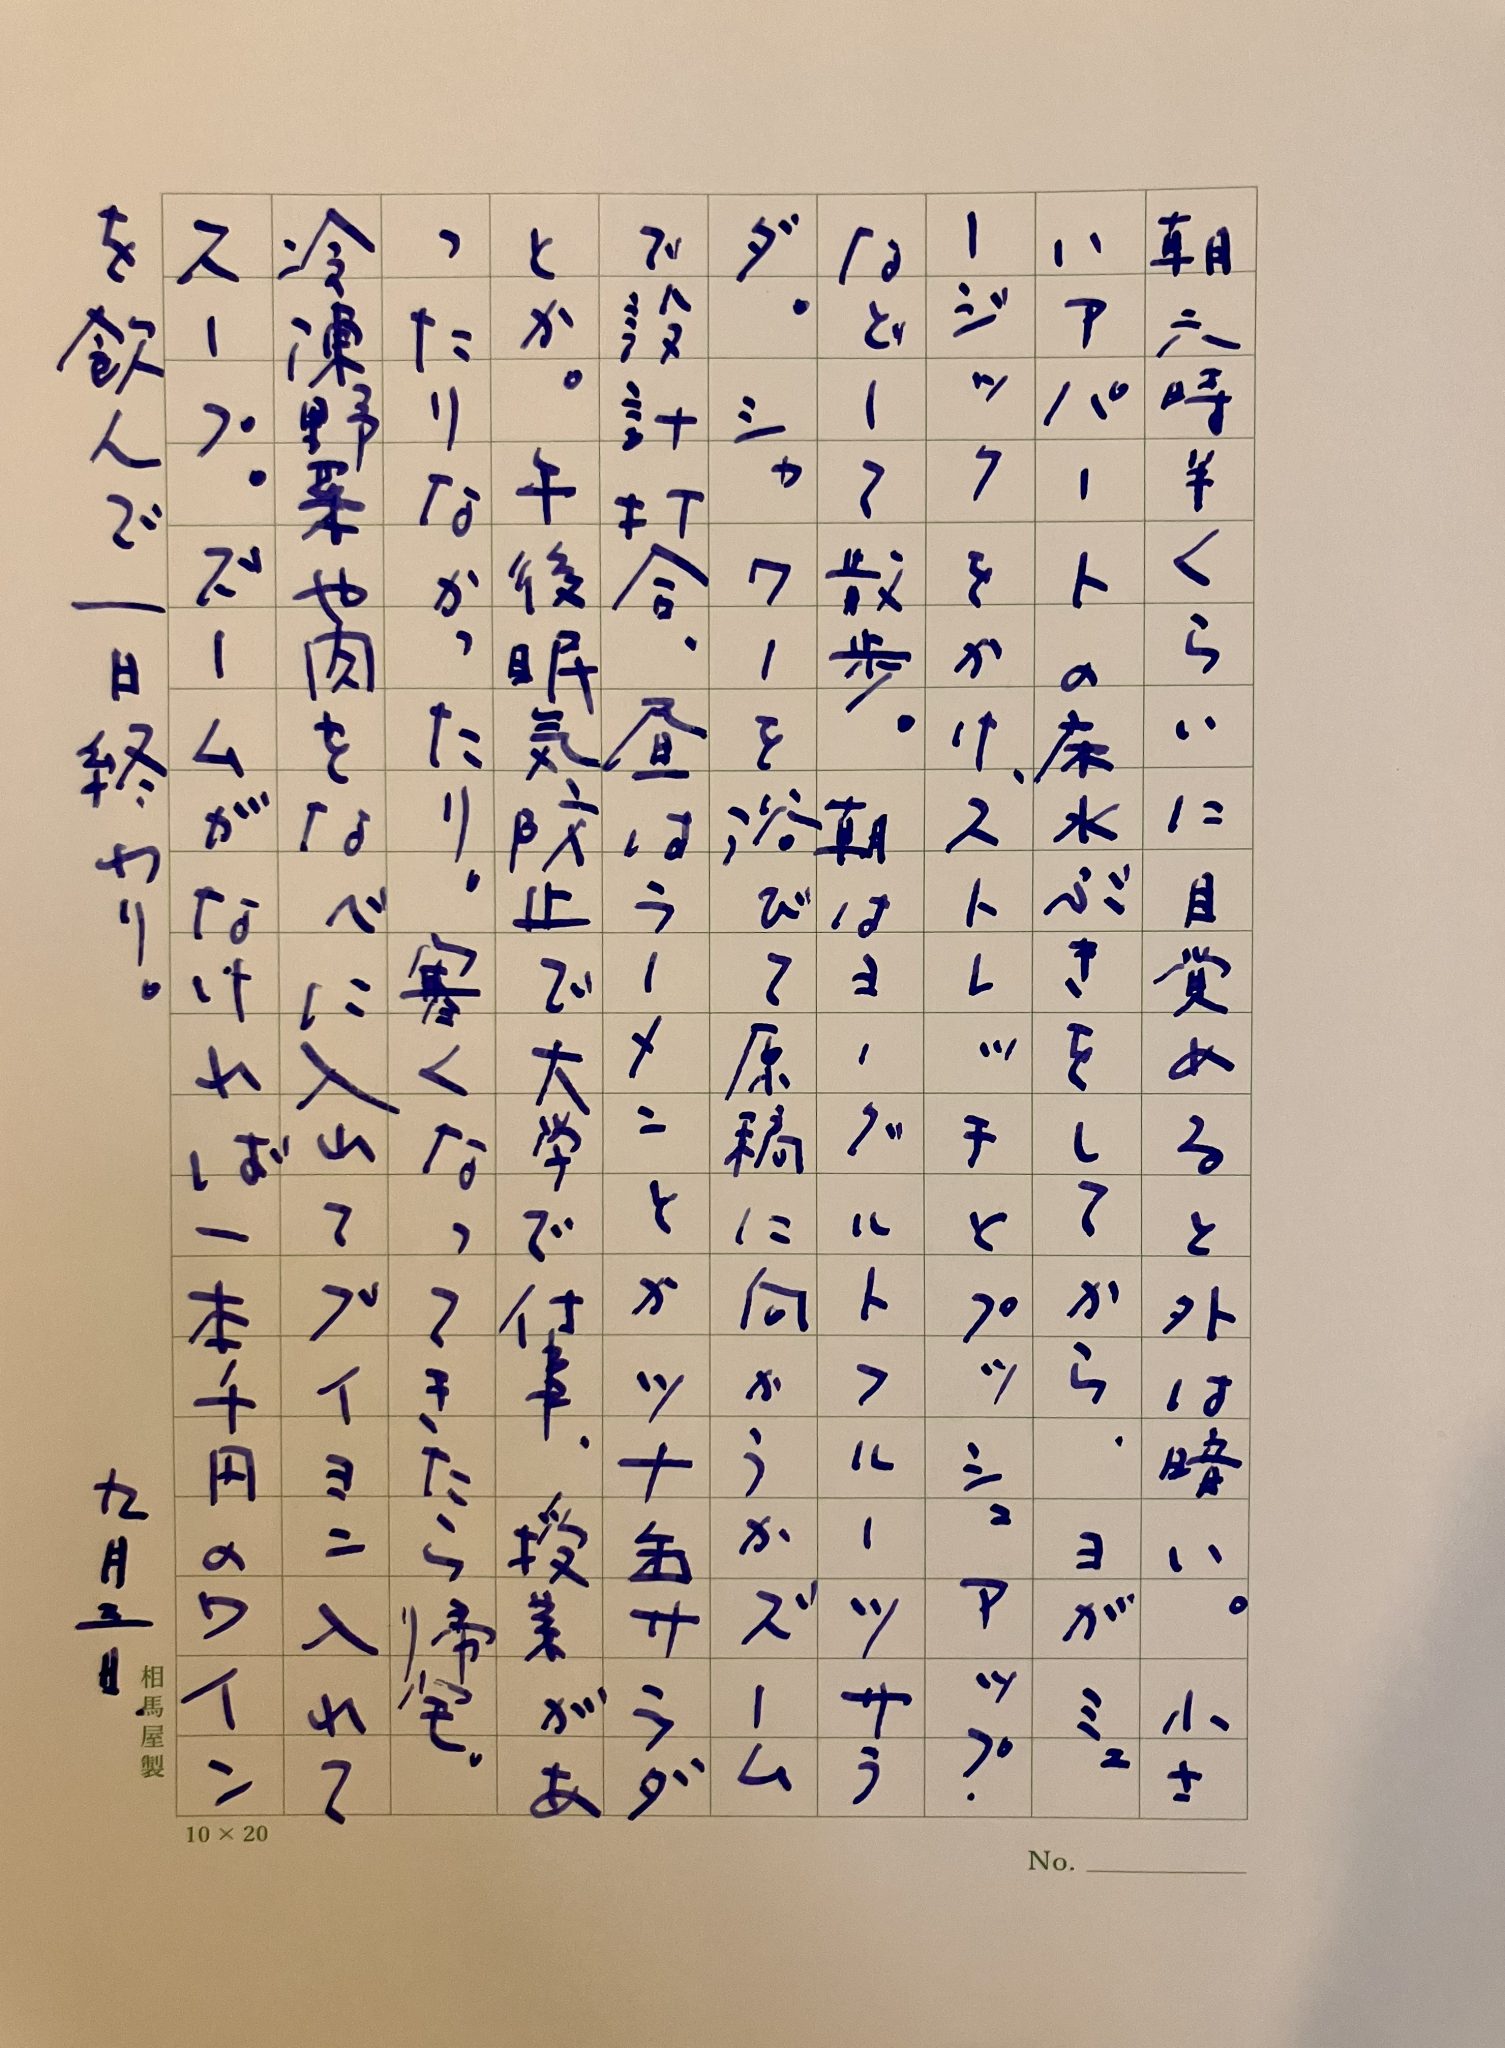 朝六時半くらいに目覚めると外は暗い。小さ
いアパートの床水ぶきをしてから、ヨガミュ
ージックをかけ、ストレッチとプッシュアップ、
などして散歩。朝はヨーグルトフルーツサラ
ダ。シャワーを浴びて原稿に向かうかズーム
で設計打合、昼はラーメンとかツナ缶サラダ
とか。午後眠気防止で大学で仕事、授業があ
ったりなかったり。寒くなってきたら帰り宅。
冷凍野菜や肉をなべに入出てブイヨン入れて
スープ。ズームがなければ一本千円のワイン
を飲んで一日終わり。
九月三日
相馬屋製
10×20
No.